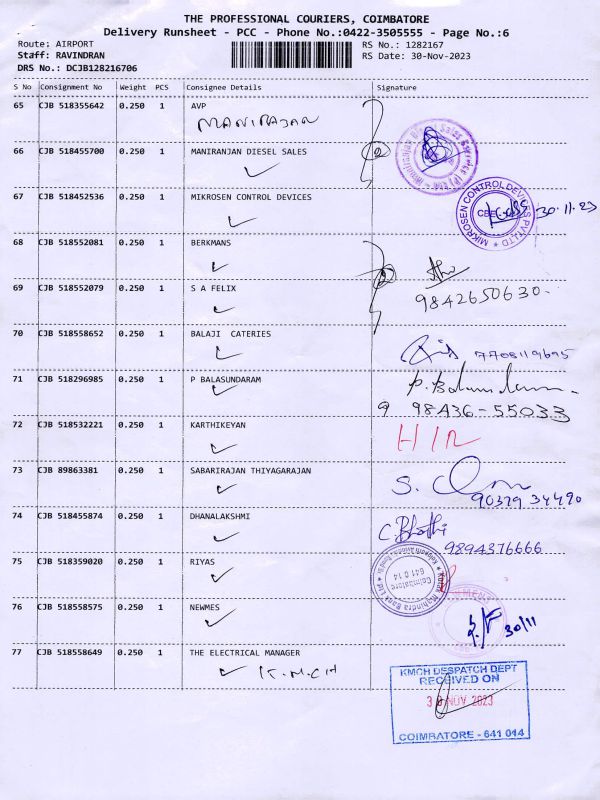 THE PROFESSIONAL COURIERS, COIMBATORE
Delivery Runsheet - PCC - Phone No.:0422-3505555 - Page No.:6
Route: AIRPORT RS No.: 1282167
Staff: RAVINDRAN RS Date: 30-Nov-2023
DRS No.: DCJB128216706
S No Consignment No Weight PCS Consignee Details Signature
65 CJB 518355642 0.250 1 AVP
MANIRAJAN
66 CJB 518455700 0.250 1 MANIRANJAN DIESEL SALES
67 CJB 518452536 0.250 1 MIKROSEN CONTROL DEVICES
MIKROSEN CONTROL DEVICES PVT LTD
CBE
30.11.23
68 CJB 518552081 0.250 1 BERKMANS
69 CJB 518552079 0.250 1 S A FELIX
9842650630.
70 CJB 518558652 0.250 1 BALAJI CATERIES
7708119695
71 CJB 518296985 0.250 1 P BALASUNDARAM
98436-55033
72 CJB 518532221 0.250 1 KARTHIKEYAN
73 CJB 89863381 0.250 1 SABARIRAJAN THIYAGARAJAN
90379 34490
74 CJB 518455874 0.250 1 DHANALAKSHMI
C. Bhathi
9894376666
75 CJB 518359020 0.250 1 RIYAS
Kotak Mahindra Bank Ltd
Coimbatore
641 014
76 CJB 518558575 0.250 1 NEWMES
30/11
77 CJB 518558649 0.250 1 THE ELECTRICAL MANAGER
K.M.C.H
KMCH DESPATCH DEPT
RECEIVED ON
30 NOV 2023
COIMBATORE - 641 014